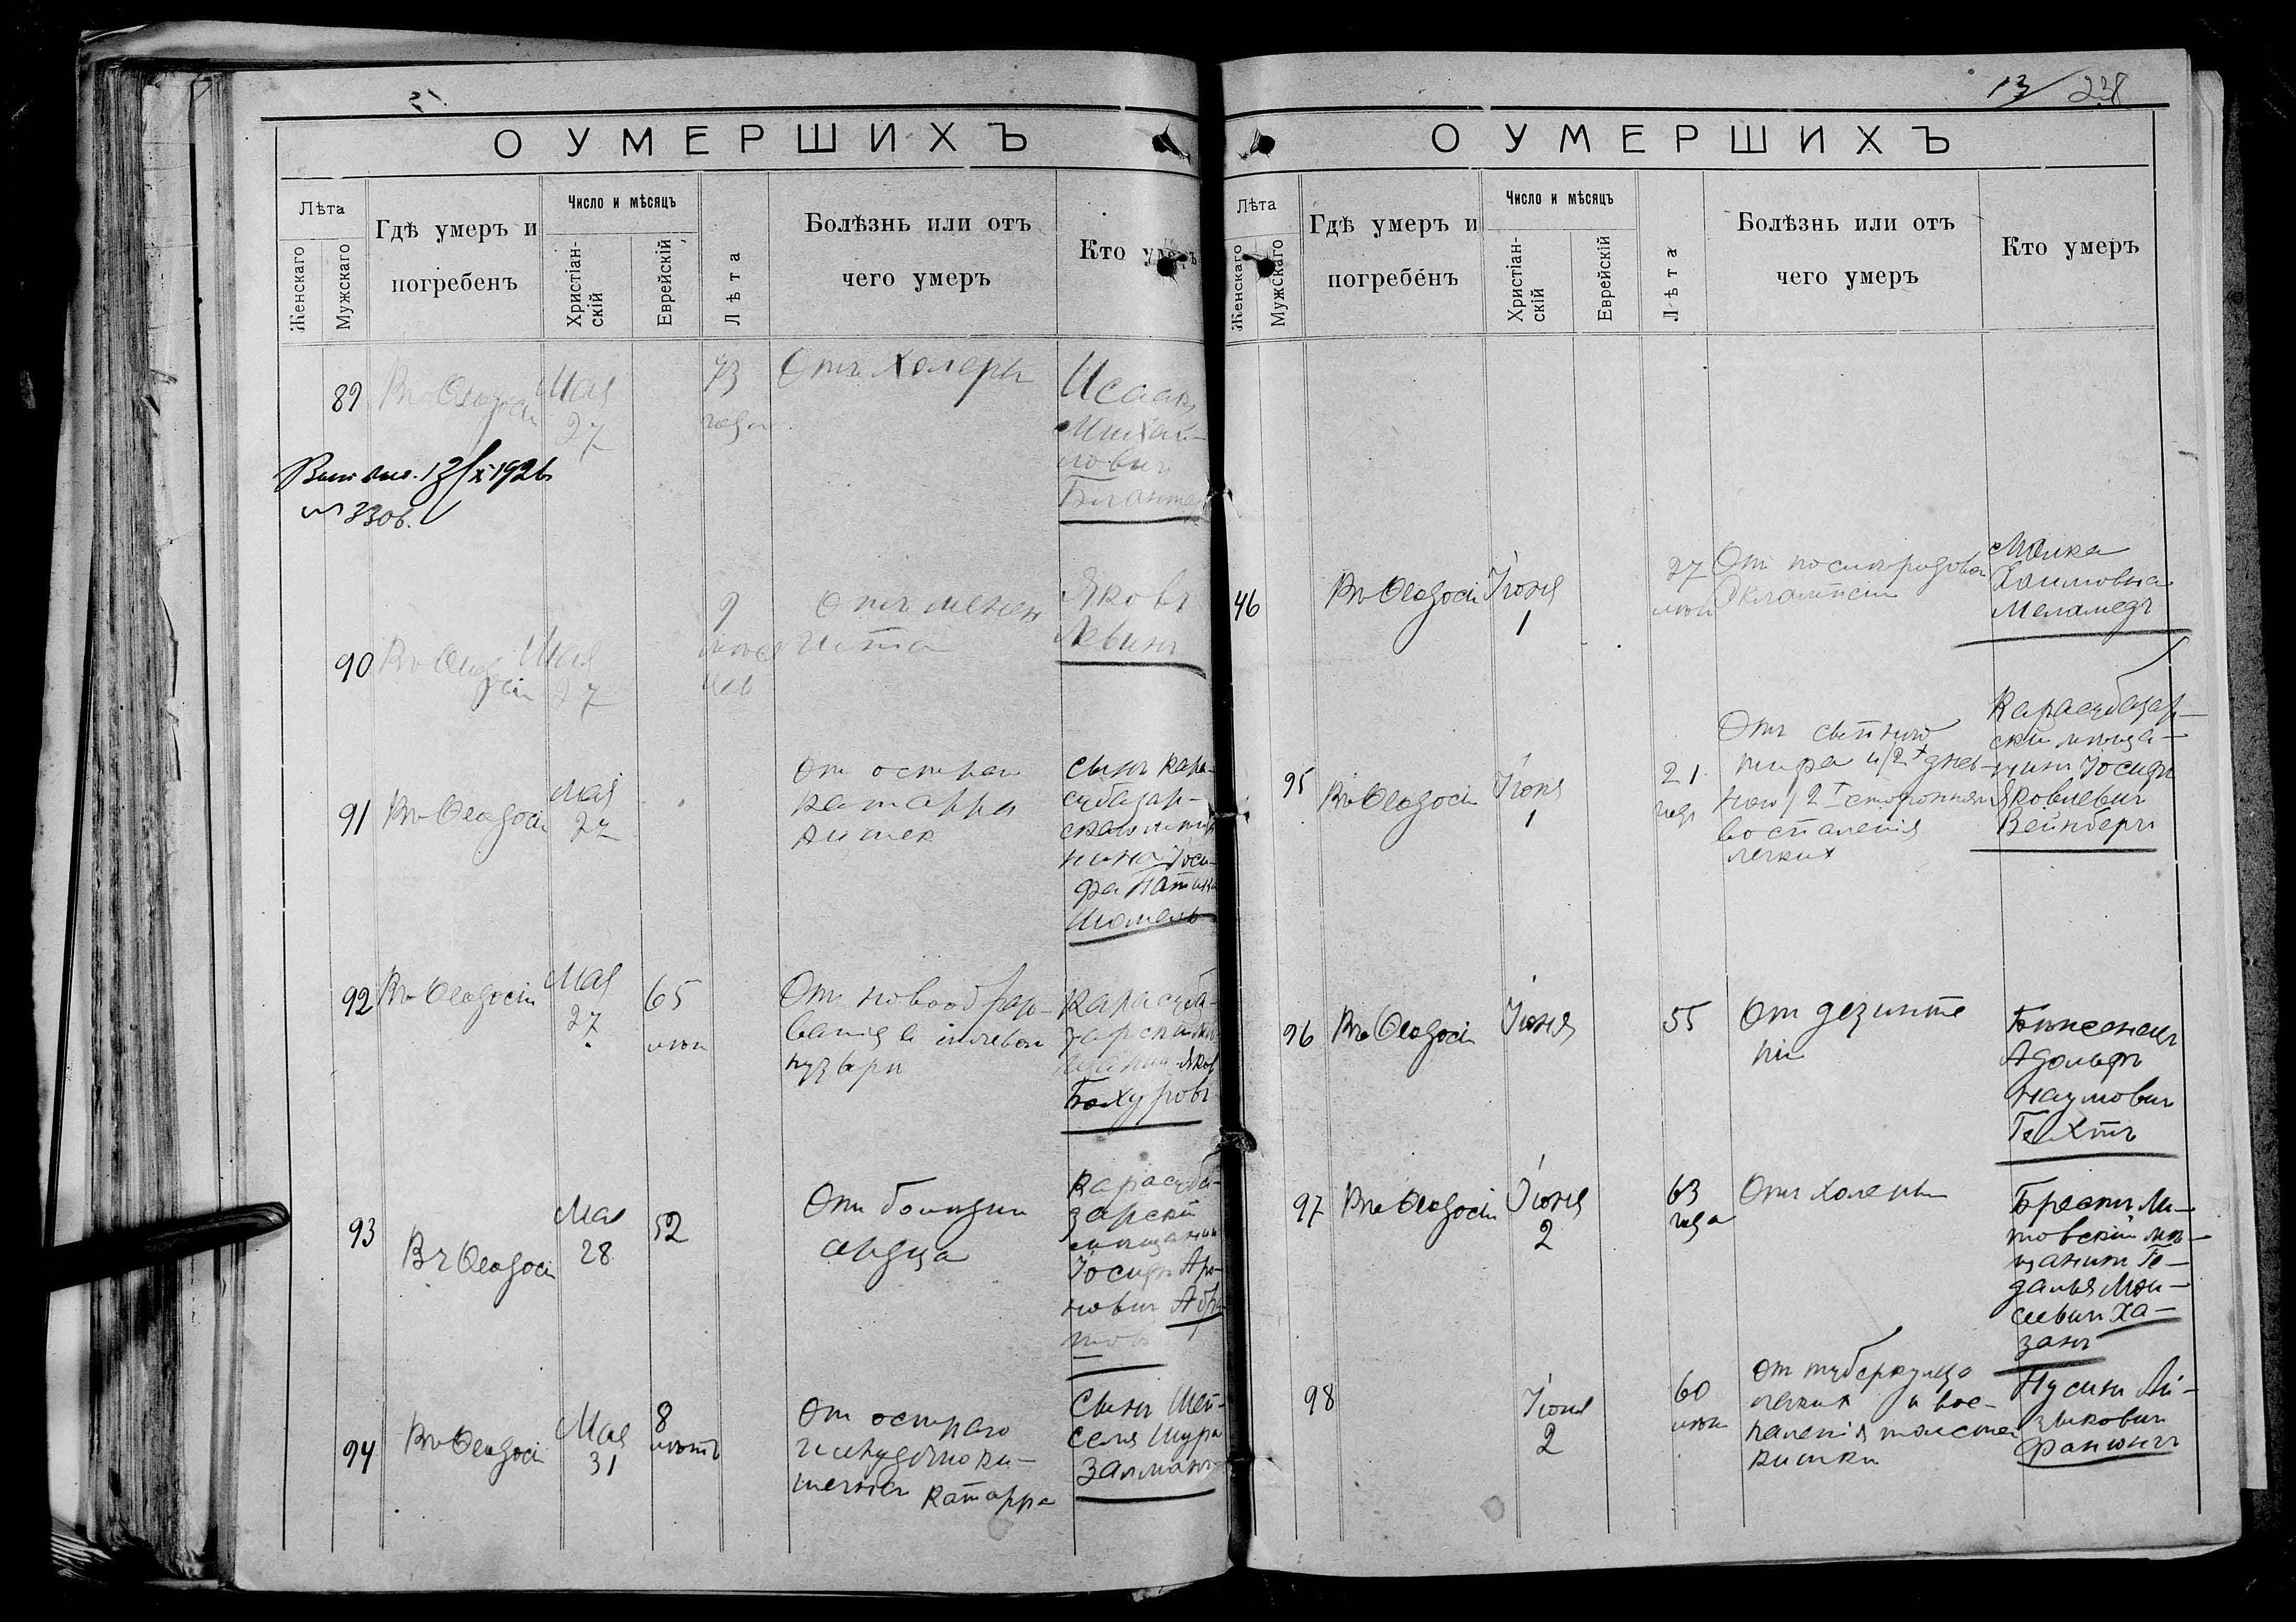 О УМЕРШИХЪ
Лѣта
Женскаго
Мужскаго
Гдѣ умеръ и
погребенъ
Число и мѣсяцъ
Христіан-
скій
Еврейскій
Лѣта
Болѣзнь или отъ
чего умеръ
Кто умеръ
89
Въ Ѳеодосіи
Мая
27
73
года
Отъ холеры
Исаакъ
Михай-
ловичъ
13/X 1926
№ 330б.
90
Въ Ѳеодо
сіи
Мая
27
9
меся
цев
Отъ менен
гита
Яковъ
Левинъ
91
Въ Ѳеодосіи
Мая
27
От остраго
катарра
кишек
Сынъ Кара-
субазар-
скаго мѣща
нина Іоси-
фа Натана
92
Въ Ѳеодосіи
Мая
27
65
лѣт
От новообразо-
ванія в мочевом
пузырѣ
Карасуба-
зарскій мѣ
щанин Яков
Бахуровъ
93
Въ Ѳеодосіи
Мая
28
52
От болѣзни
сердца
Карасуба-
зарскій
мѣщанин
Іосифъ Аро-
новичъ
94
Въ Ѳеодосіи
Мая
31
8
лѣтъ
От остраго
желудочноки-
шечнаго катарра
Сынъ Шей-
селя Шура
Залманъ
13/238
О УМЕРШИХЪ
Лѣта
Женскаго
Мужскаго
Гдѣ умеръ и
погребенъ
Число и мѣсяцъ
Христіан-
скій
Еврейскій
Лѣта
Болѣзнь или отъ
чего умеръ
Кто умеръ
46
Въ Ѳеодосіи
Іюня
1
27
лѣт
От послеродовой
Эклампсіи
Малка
Хаимовна
Меламедъ
95
Въ Ѳеодосіи
Іюня
1
21
год
Отъ сыпного
тифа и /2х днев-
ного/ 2х стороннего
воспаленія
легких
Карасубазар-
скій мѣща-
нинъ Іосифъ
Яковлевичъ
Вейнбергъ
96
Въ Ѳеодосіи
Іюня
55
От дезинте
ріи
Биженец
Адольфъ
Наумович
Гехтъ
97
Въ Ѳеодосіи
Іюня
2
63
года
Отъ холеры
Брестъ Ли-
товскій мѣ-
щанинъ Ге-
далья Мои-
сеевич Ха-
занъ
98
Іюня
2
60
лѣт
От туберкулеза
легких и вос-
паленія толстой
кишки
Нусинъ Ай-
зикович